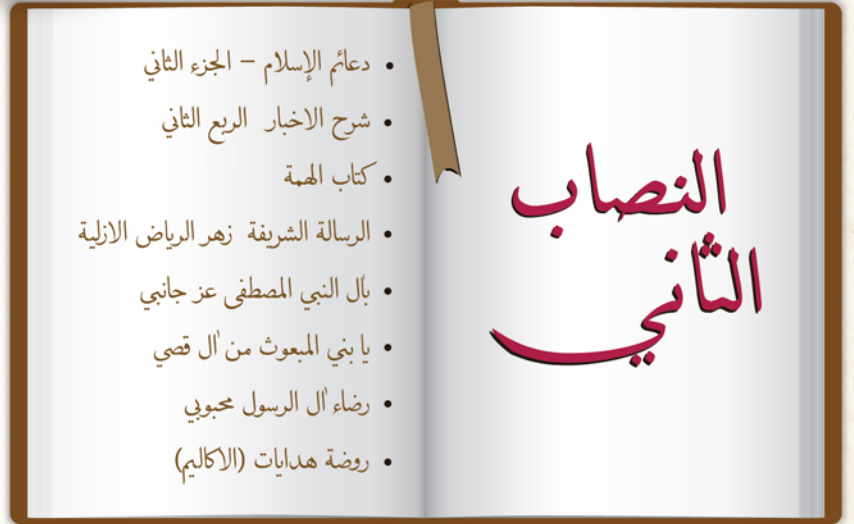 النصاب
الثاني
• دعائم الإسلام – الجزء الثاني
• شرح الاخبار الربع الثاني
• كتاب الهمة
• الرسالة الشريفة زهر الرياض الازلية
• بأل النبي المصطفى عز جانبي
• يا بني المبعوث من أل قصي
• رضاء أل الرسول محبوبي
• روضة هدايات (الاكاليم)